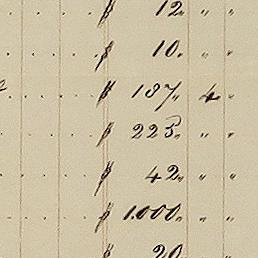 12 〃 〃
10 〃 〃
187 〃 4 〃
223 〃 〃
42 〃 〃
1.000 〃 〃
20 〃 〃